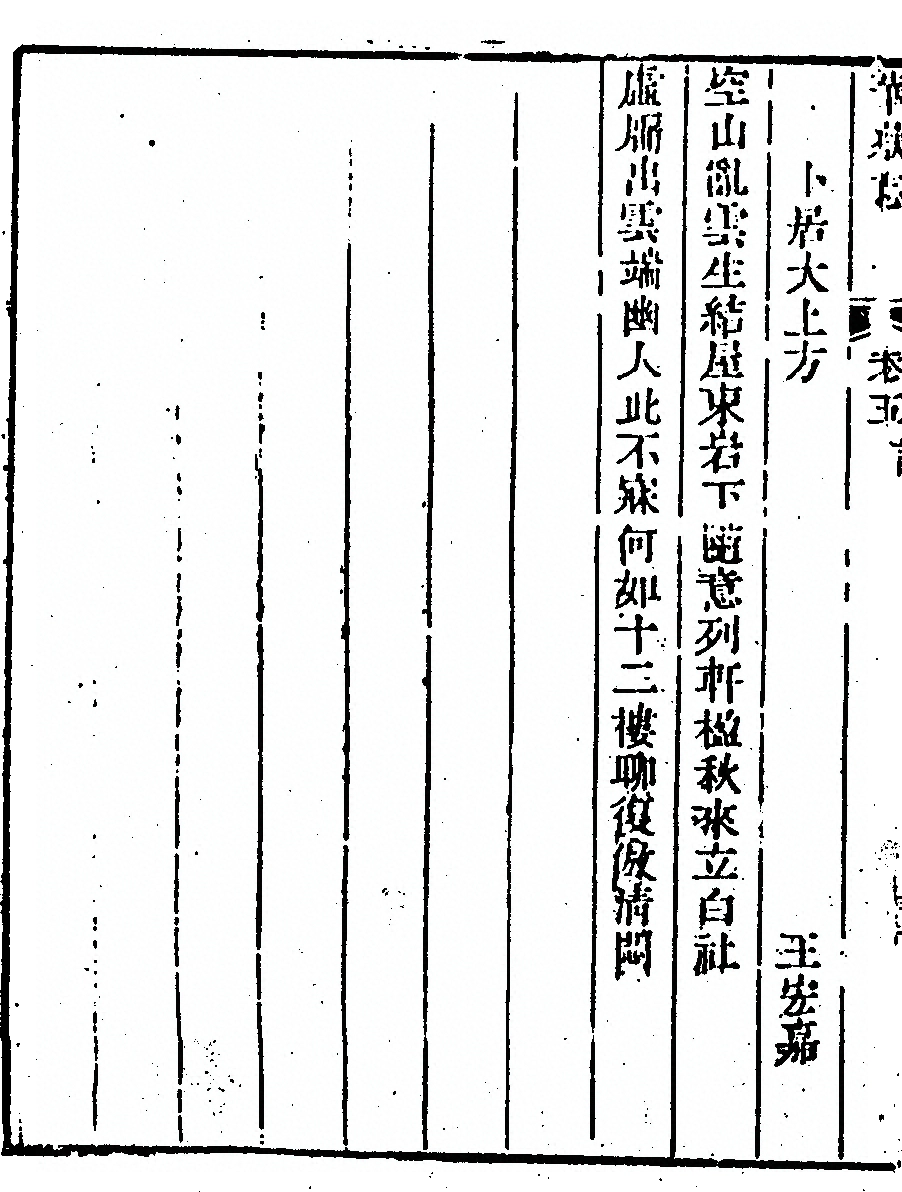 卷五
卜居大上方 王宏嘉
空山亂雲生結屋東岩下隨意列軒楹秋來立白社
虛牖出雲端幽人此不寐何如十二樓聊復倣清閟